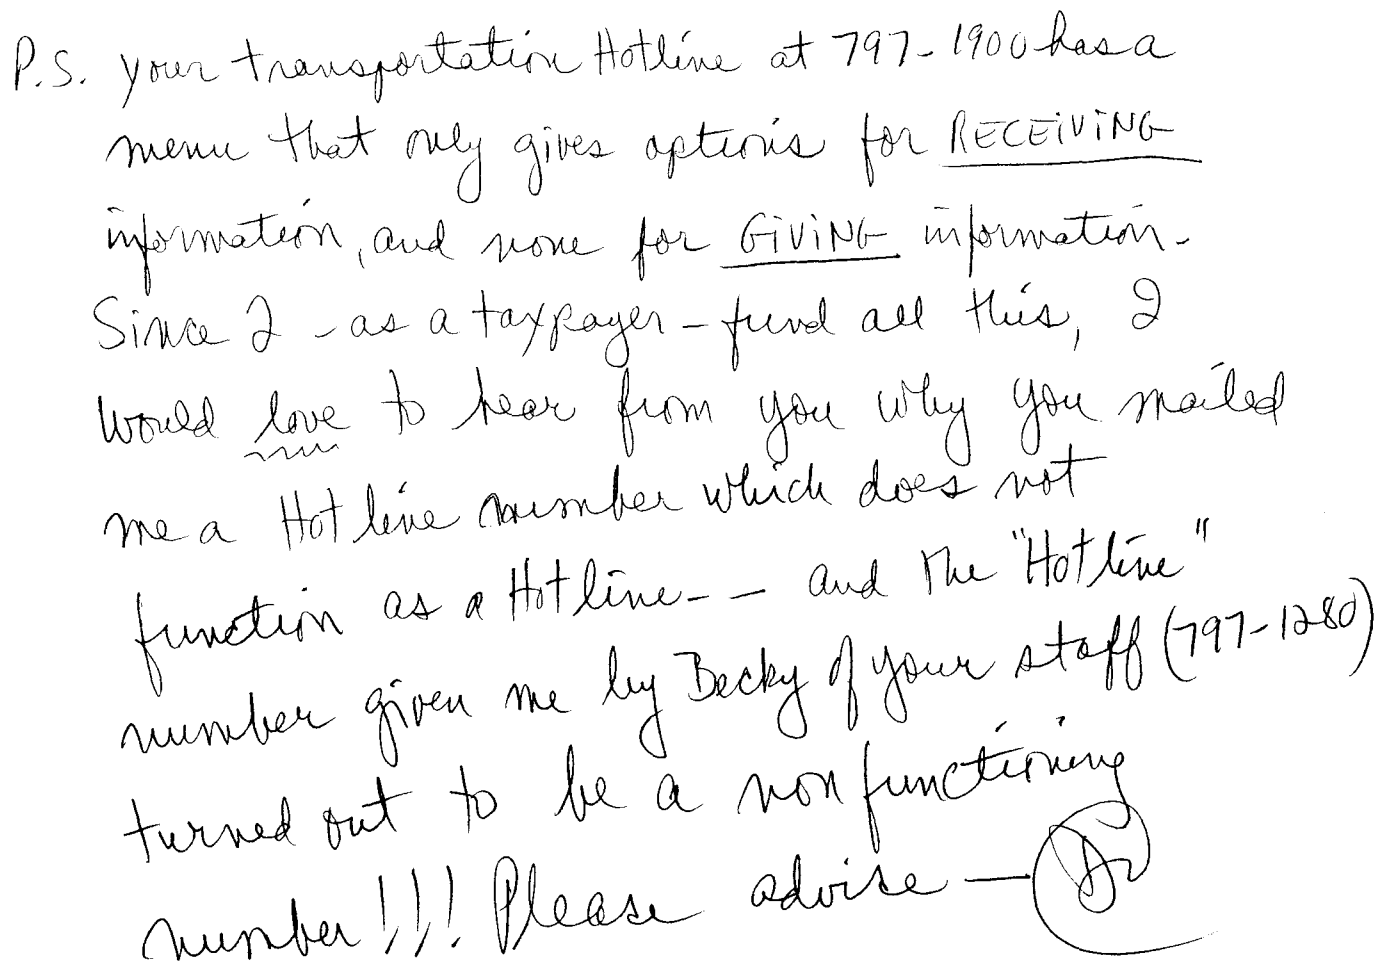 P.S. your transportation Hotline at 797-1900 has a
menu that only gives options for RECEIVING
information, and none for GIVING information.
Since I - as a taxpayer - fund all this, I
would love to hear from you why you mailed
me a Hotline number which does not
function as a Hotline -- and the "Hotline"
number given me by Becky of your staff (797-1280)
turned out to be a nonfunctioning
number!!! Please advise —